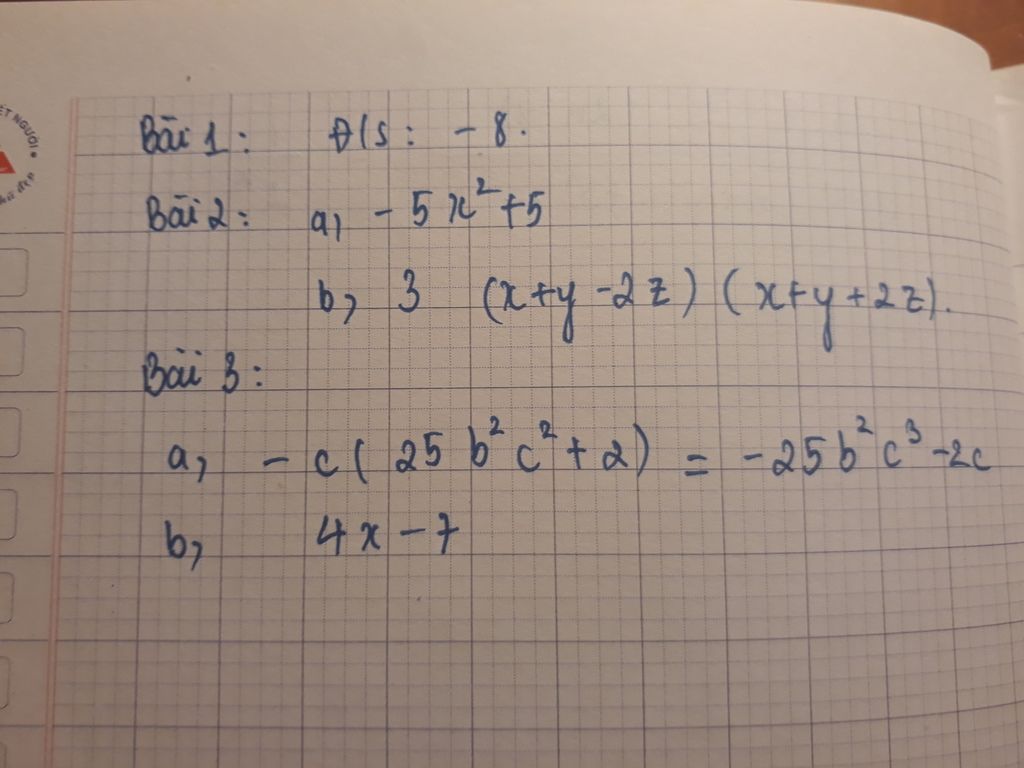 ẾT NGƯỜI
Bài 1: Đ/S: - 8.
Bài 2: a, - 5x² + 5
b, 3 (x + y - 2z) (x + y + 2z).
Bài 3:
a, - c ( 25 b² c² + 2) = - 25 b² c³ - 2c
b, 4x - 7